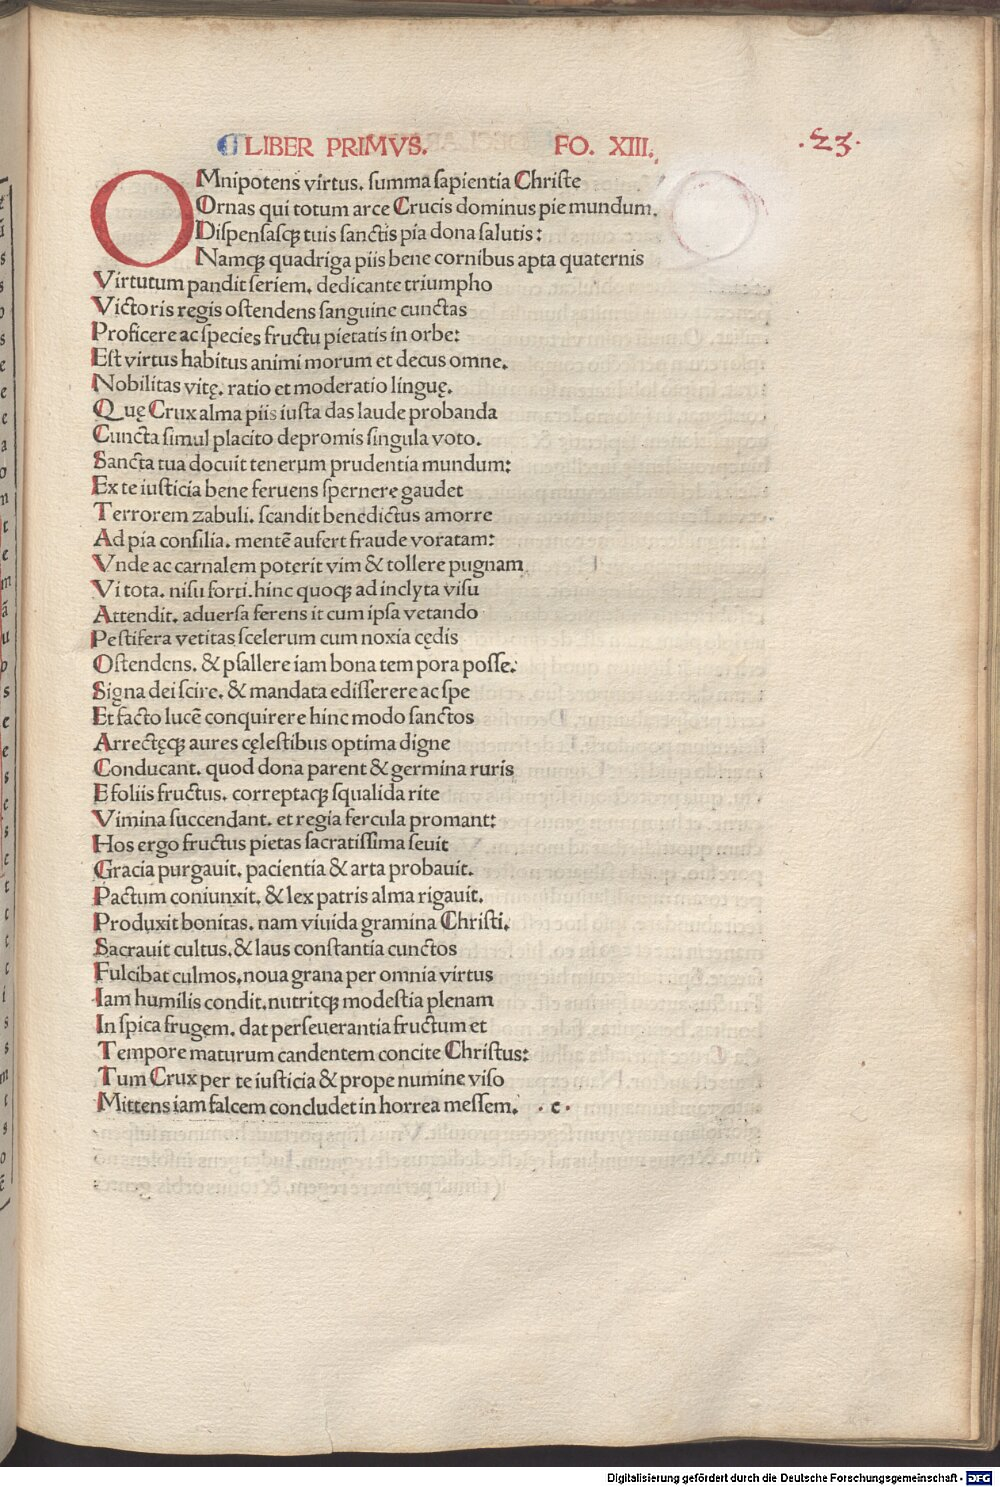 ¶ LIBER PRIMVS. FO. XIII. .23.
OMnipotens virtus. ſumma ſapientia Chriſte
Ornas qui totum arce Crucis dominus pie mundum.
Diſpenſaſqꝫ tuis ſanctis pia dona ſalutis:
Namqꝫ quadriga piis bene cornibus apta quaternis
Virtutum pandit ſeriem. dedicante triumpho
Victoris regis oſtendens ſanguine cunctas
Proficere ac ſpecies fructu pietatis in orbe:
Eſt virtus habitus animi morum et decus omne.
Nobilitas vitę. ratio et moderatio linguę.
Quę Crux alma piis iuſta das laude probanda
Cuncta ſimul placito depromis ſingula voto.
Sancta tua docuit tenerum prudentia mundum:
Ex te iuſticia bene feruens ſpernere gaudet
Terrorem zabuli. ſcandit benedictus amorre
Ad pia conſilia. mentē aufert fraude voratam:
Vnde ac carnalem poterit vim & tollere pugnam
Vi tota. niſu forti. hinc quoqꝫ ad inclyta viſu
Attendit. aduerſa ferens it cum ipſa vetando
Peſtifera vetitas ſcelerum cum noxia cędis
Oſtendens. & pſallere iam bona tempora poſſe:
Signa dei ſcire. & mandata ediſſerere ac ſpe
Et facto lucē conquirere hinc modo ſanctos
Arrectęqꝫ aures cęleſtibus optima digne
Conducant. quod dona parent & germina ruris
E foliis fructus. correptaqꝫ ſqualida rite
Vimina ſuccendant. et regia fercula promant:
Hos ergo fructus pietas ſacratiſſima ſeuit
Gracia purgauit. pacientia & arta probauit.
Pactum coniunxit. & lex patris alma rigauit.
Produxit bonitas. nam viuida gramina Chriſti.
Sacrauit cultus. & laus conſtantia cunctos
Fulcibat culmos. noua grana per omnia virtus
Iam humilis condit. nutritqꝫ modeſtia plenam
In ſpica frugem. dat perſeuerantia fructum et
Tempore maturum candentem concite Chriſtus:
Tum Crux per te iuſticia & prope numine viſo
Mittens iam falcem concludet in horrea meſſem. . c .
Digitalisierung gefördert durch die Deutsche Forschungsgemeinschaft - DFG